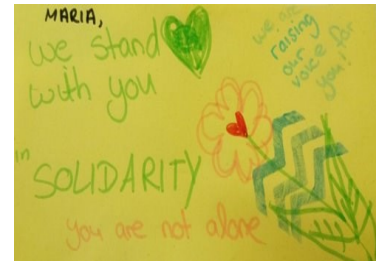 MARIA,
we stand
with you
in
SOLIDARITY
you are not alone
we are
raising
our
voice for
you!